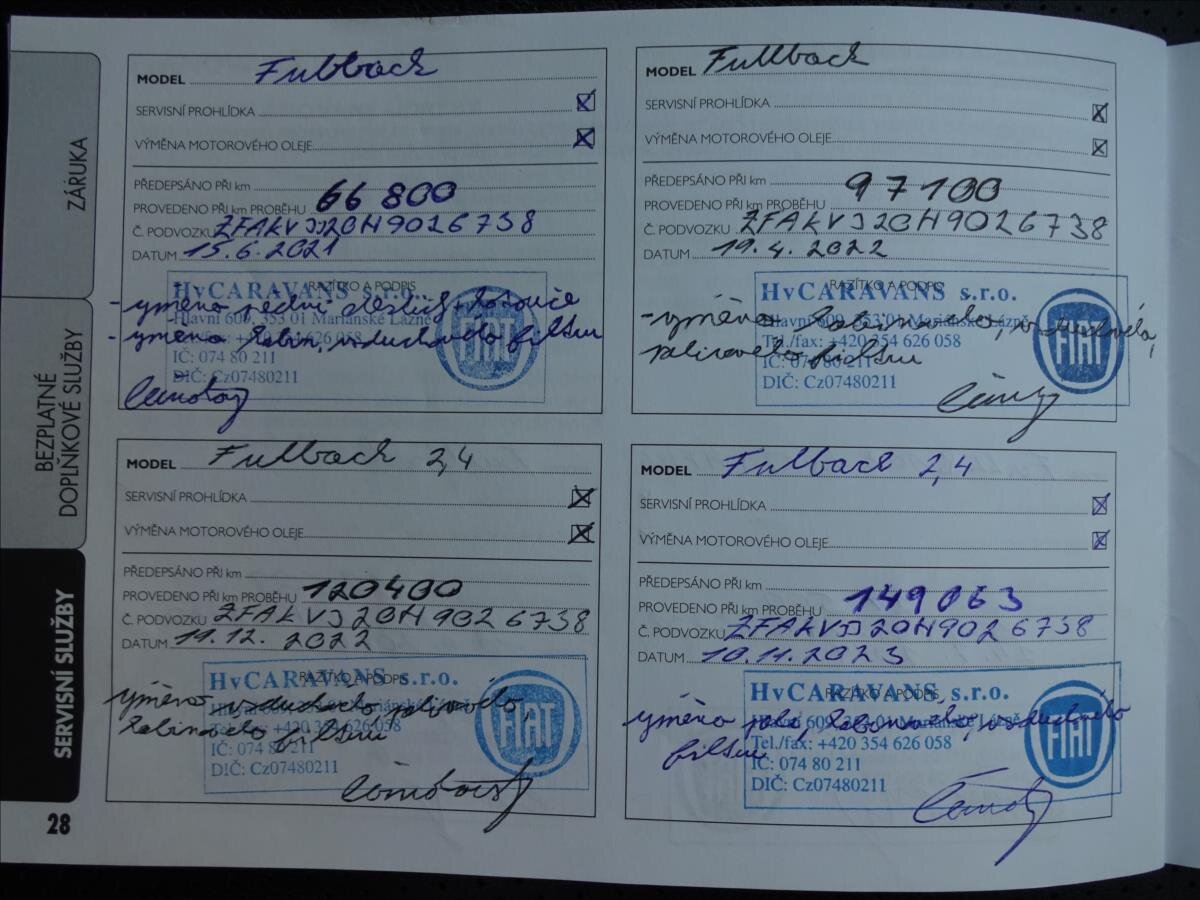 ZÁRUKA
BEZPLATNÉ
DOPLŇKOVÉ SLUŽBY
SERVISNÍ SLUŽBY
28
MODEL Fullback
SERVISNÍ PROHLÍDKA
VÝMĚNA MOTOROVÉHO OLEJE
PŘEDEPSÁNO PŘI km
PROVEDENO PŘI KM PROBĚHU 66 800
Č. PODVOZKU ZFAKVJJ20H9026738
DATUM 15.6.2021
RAZÍTKO A PODPIS
HvCARAVANS s.r.o.
- výměna přední + kotouče
Hlavní 609, 353 01 Mariánské Lázně
- výměna kabin, vzduchového filtru
IČ: 074 80 211
DIČ: Cz07480211
FIAT
MODEL Fullback
SERVISNÍ PROHLÍDKA
VÝMĚNA MOTOROVÉHO OLEJE
PŘEDEPSÁNO PŘI km
PROVEDENO PŘI KM PROBĚHU 97100
Č. PODVOZKU ZFAKVJ20H9026738
DATUM 19.4.2022
RAZÍTKO A PODPIS
HvCARAVANS s.r.o.
Hlavní 609, 353 01 Mariánské Lázně
- výměna kabinového, vzduchového,
Tel./fax: +420 354 626 058
palivového filtru
IČ: 074 80 211
DIČ: Cz07480211
FIAT
MODEL Fullback 2,4
SERVISNÍ PROHLÍDKA
VÝMĚNA MOTOROVÉHO OLEJE
PŘEDEPSÁNO PŘI km
PROVEDENO PŘI KM PROBĚHU 120400
Č. PODVOZKU ZFAKVJ20H9026738
DATUM 11.12. 2022
RAZÍTKO A PODPIS
HvCARAVANS s.r.o.
výměna vzduchového, palivového,
Tel./fax: +420 354 626 058
kabinového filtru
IČ: 074 80 211
DIČ: Cz07480211
FIAT
MODEL Fullback 2,4
SERVISNÍ PROHLÍDKA
VÝMĚNA MOTOROVÉHO OLEJE
PŘEDEPSÁNO PŘI km
PROVEDENO PŘI KM PROBĚHU 149063
Č. PODVOZKU ZFAKVJJ20H9026738
DATUM 10.11.2023
RAZÍTKO A PODPIS
HvCARAVANS s.r.o.
výměna kabinového, vzduchového
Hlavní 609, 353 01 Mariánské Lázně
Tel./fax: +420 354 626 058
filtru
IČ: 074 80 211
DIČ: Cz07480211
FIAT